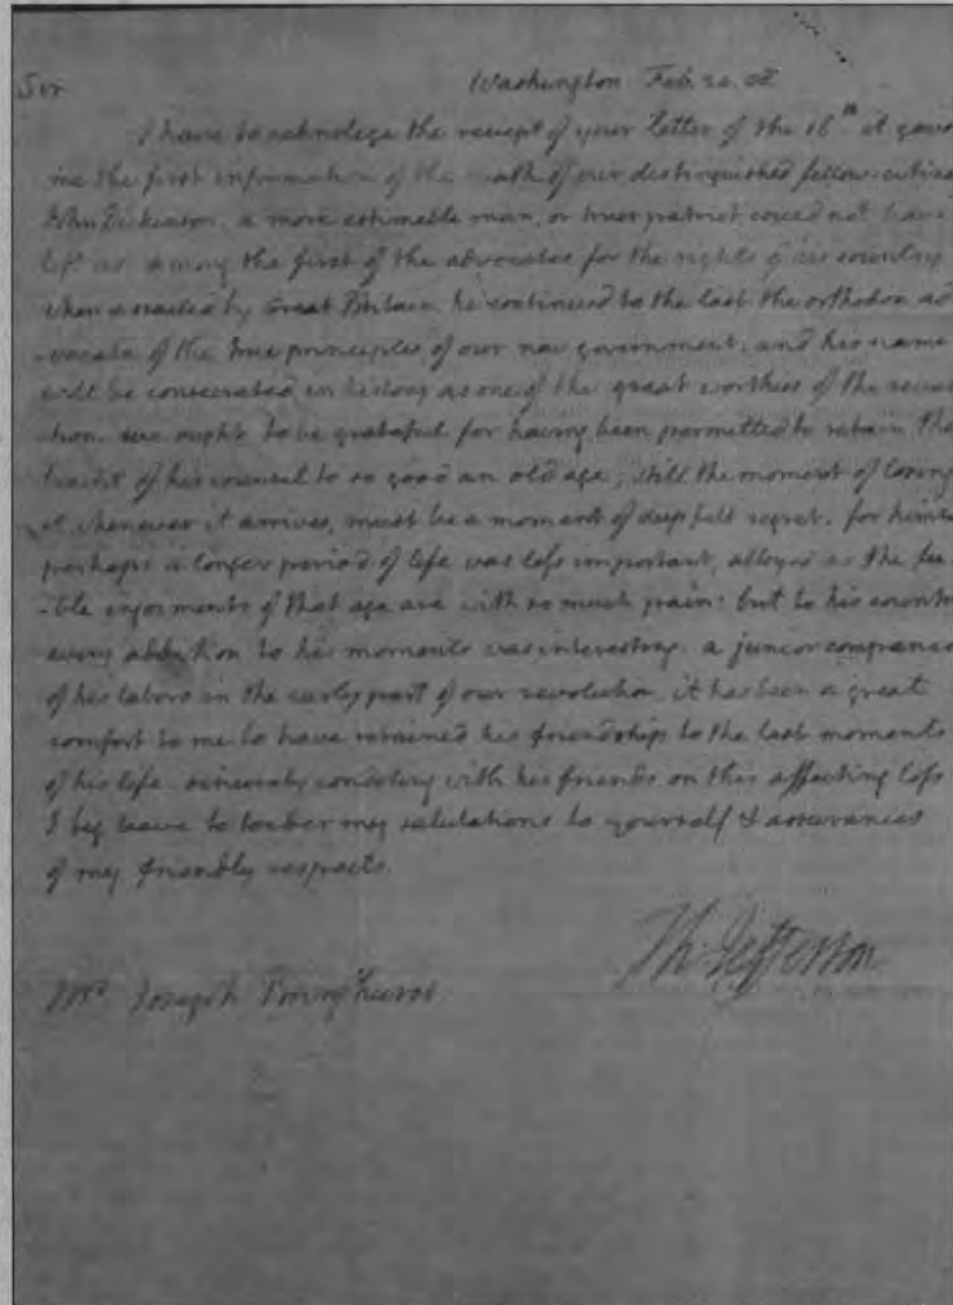 Sir
Washington Feb. 24. 08
I have to acknolege the receipt of your letter of the 16th it gave
me the first information of the death of our distinguished fellow-citizen
John Dickinson. a more estimable man, or truer patriot could not have
left us. among the first of the advocates for the rights of his country
when assailed by Great Britain, he continued to the last the orthodox ad
-vocate of the true principles of our new government, and his name
will be consecrated in history as one of the great worthies of the revolu
tion. we ought to be grateful for having been permitted to retain the
benefit of his counsel to so good an old age; still the moment of losing
it, whenever it arrives, must be a moment of deep felt regret. for himself
perhaps a longer period of life was less important, alloyed as the fee
-ble enjoiments of that age are with so much pain. but to his country
every addition to his moments was interesting. a junior companion
of his labors in the early part of our revolution, it has been a great
comfort to me to have retained his friendship to the last moments
of his life. sincerely condoling with his friends on this affecting loss
I beg leave to tender my salutations to yourself & assurances
of my friendly respects.
Th: Jefferson
Mr Joseph Bringhurst